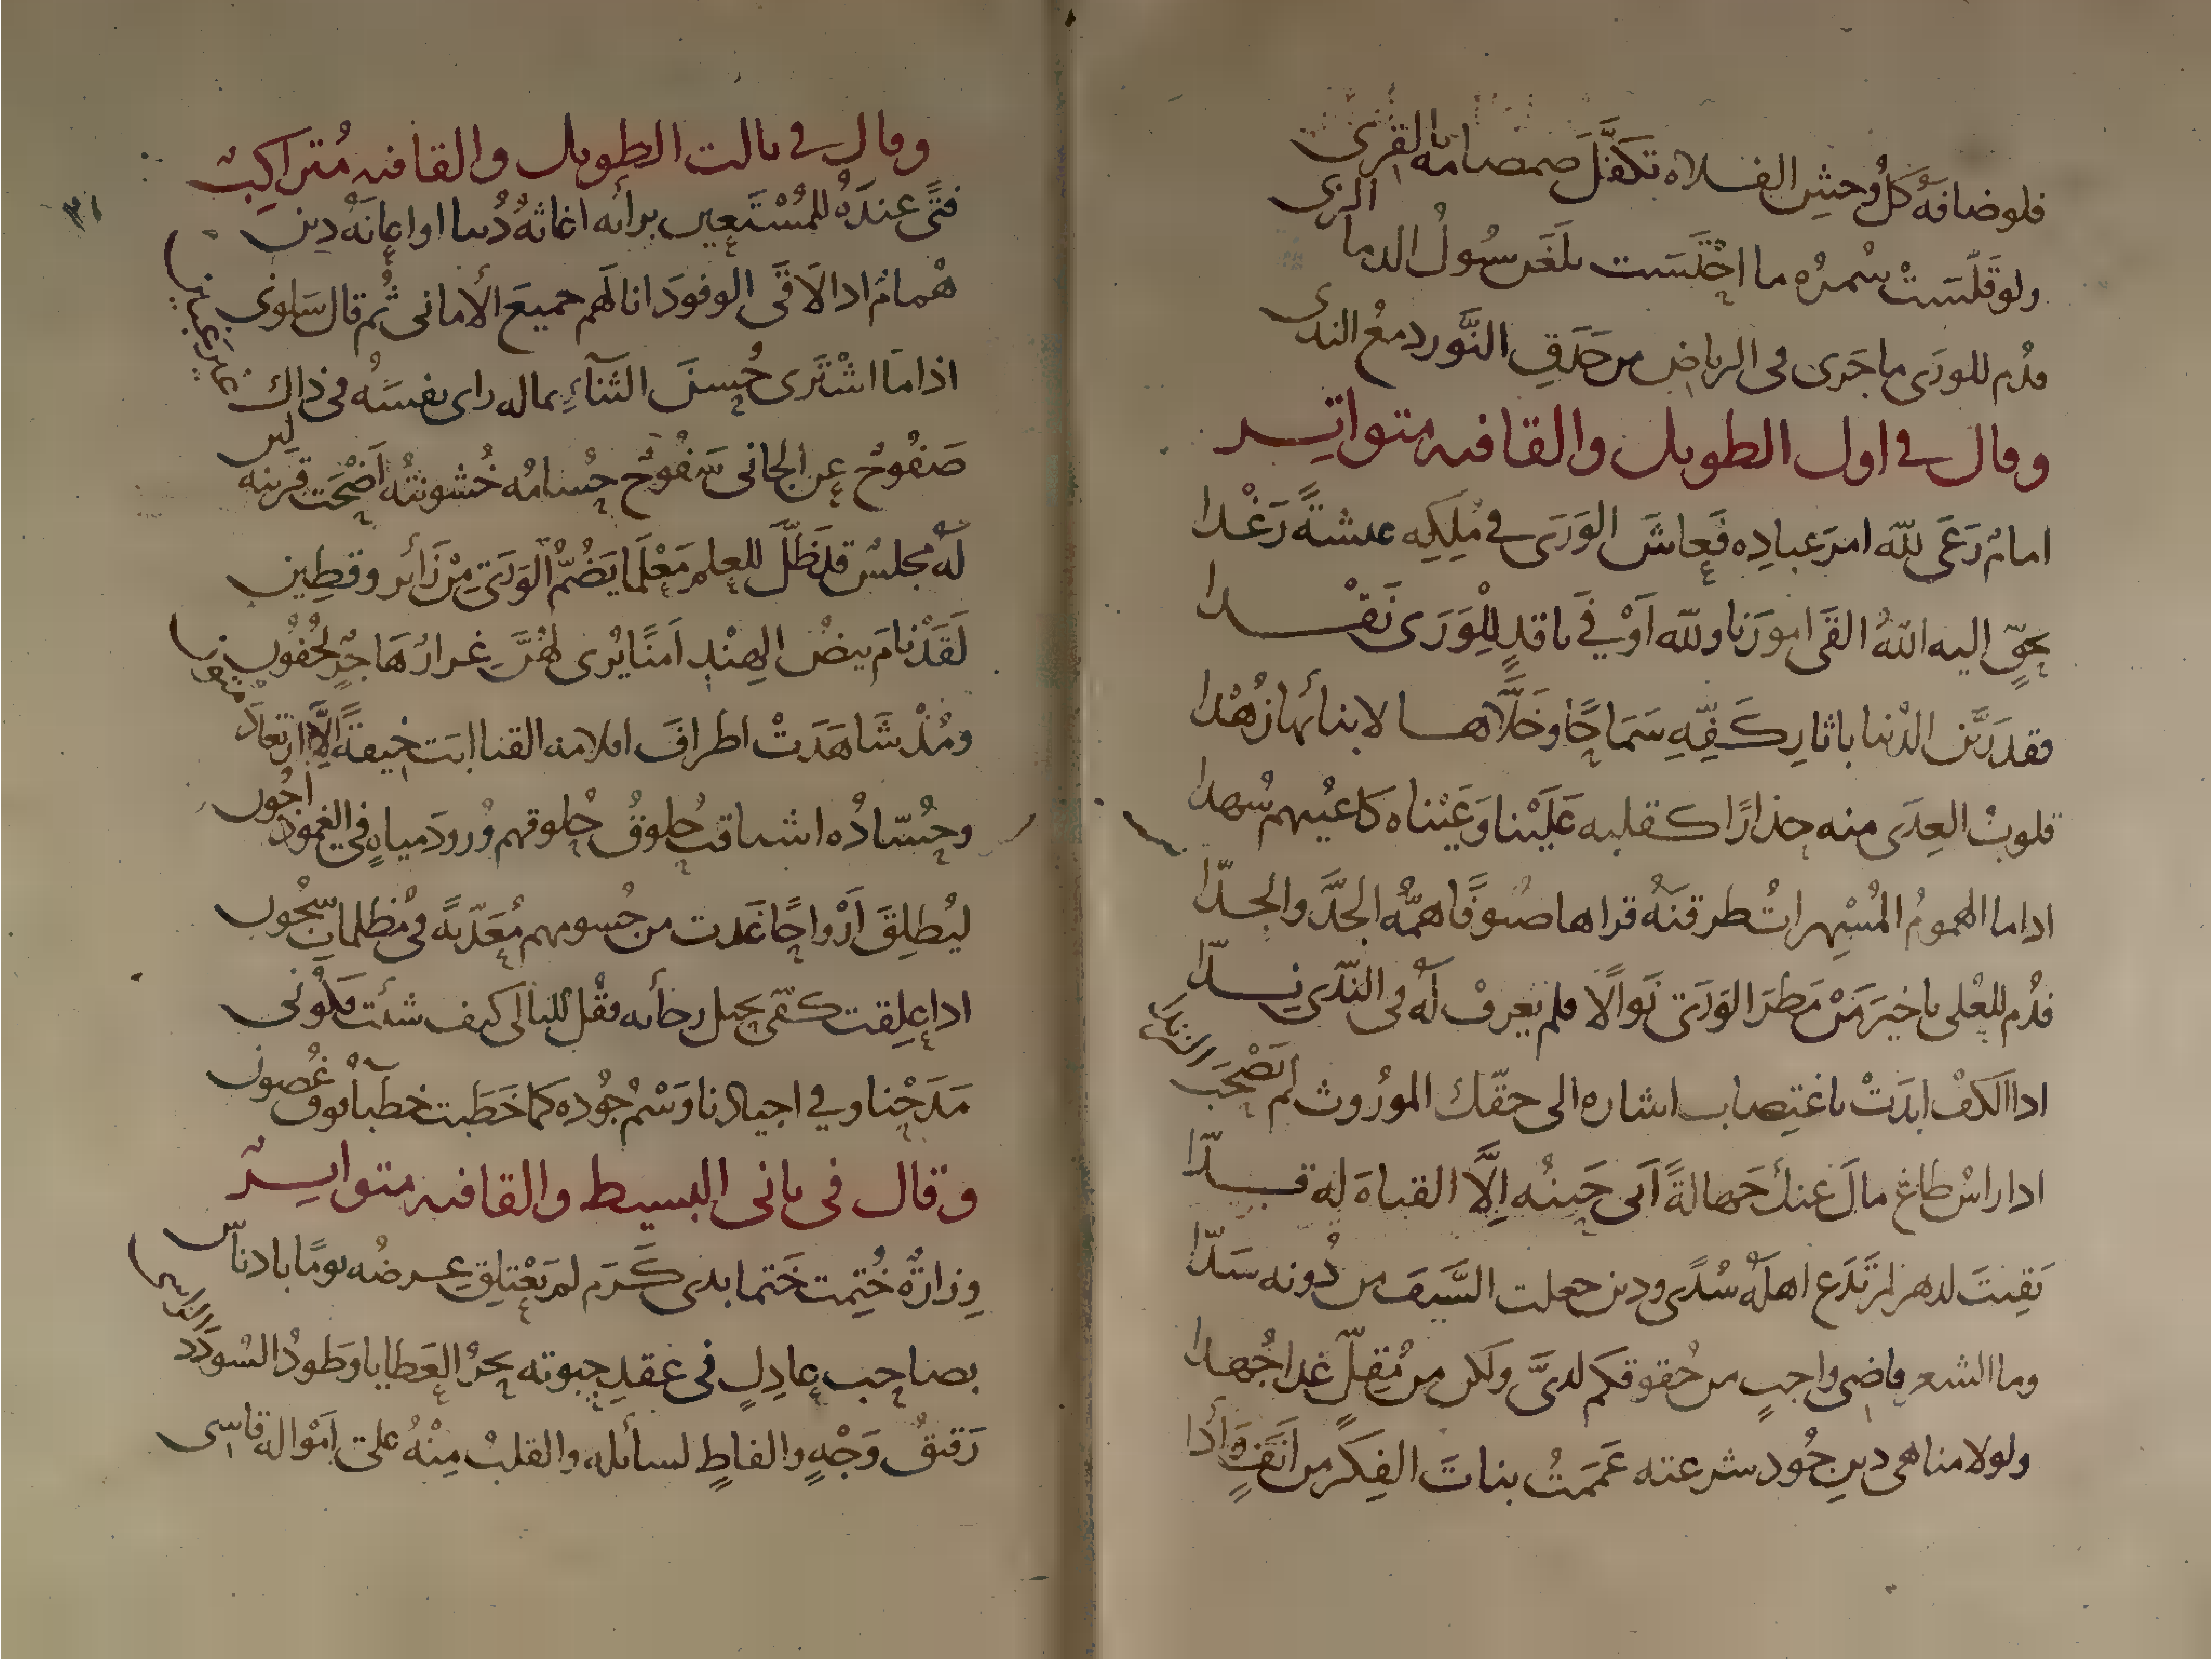 فلو ضافه كل وحش الفلاه تكفل صمصامه بالقرى
ولو قلست سمره ما اختلست بلغن سول الدما الزى
فدم للورى ما جرى فى الرياض من حدق النور دمع الندى
وقال في اول الطويل والقافيه متواتر
امام رعى لله امر عباده فعاش الورى في ملكه عيشة رغدا
بحق اليه الله القى امورنا ولله اوفي ناقد للورى نقدا
فقد زين الدنيا باثار كفه سماحا وخلاها لابنائها زهدا
قلوب العدى منه حذارا كقلبه علينا وعيناه كاعينهم سهدا
اداما الهموم المسهرات طرقنه قراها ضيوفا همه الجد والجدا
فدم للعلى يا خير من مطر الورى نوالا فلم يعرف له فى الندى ندا
ادا الكف ابدت باغتصاب اشاره الى حقك الموروث لم تصحب الزندا
ادا راس طاغ مال عنك جهالة ابى حينه الا القناه له قدا
بقيت لدهر لم تدع اهله سدى ودين جعلت السيف من دونه سدا
وما الشعر قاضى واجب من حقوقكم لدى ولكن من مقل غدا جهدا
ولولا مناهى دين جود شرعته عممت بنات الفكر من انف وأدا
وقال في ثالث الطويل والقافيه متراكب
فتى عنده للمستعين برائه اغاثه دنيا او اعانه دين
همام ادا لاقى الوفود انالهم جميع الأمانى ثم قال سلونى
اذا ما اشترى حسن الثناء بماله راى نفسه فى ذاك غير غبين
صفوح عن الجانى سفوح حسامه خشونته اضحت قرينه لين
له مجلس قد ظل للعلم معلما يضم الورى من زائر وقطين
لقد نام بيض الهند امنا يرى لهن غرار هاجر لجفون
ومذ شاهدت اطراف اقلامه القنا ابت خيفة الا ارتعاد متون
وحساده اشتاقت حلوق حلوقهم ورود مياه في الغمود اجون
ليطلق ارواحا غدت من جسومهم معذبة فى مظلمات سجون
ادا علقت كفى بحبل رجائه فقل لليالى كيف شئت فكونى
مدحنا وفي اجيادنا وسم جوده كما خطبت خطباء فوق غصون
وقال فى ثانى البسيط والقافيه متواتر
وزارة ختمت ختما بدى كرم لم يعتلق عرضه يوما بادناس
بصاحب عادل فى عقد حبوته بحر العطايا وطود السودد الراسى
رقيق وجه والفاظ لسائله والقلب منه على امواله قاسى